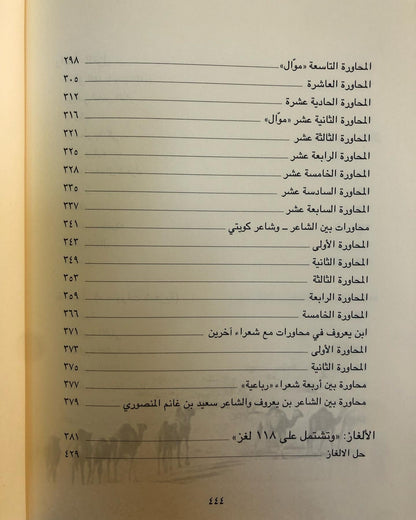 المحاورة التاسعة «موّال» ٢٩٨
المحاورة العاشرة ٣٠٥
المحاورة الحادية عشرة ٣١٢
المحاورة الثانية عشر «موّال» ٣١٦
المحاورة الثالثة عشر ٣٢١
المحاورة الرابعة عشر ٣٢٥
المحاورة الخامسة عشر ٣٢٨
المحاورة السادسة عشر ٣٣٥
المحاورة السابعة عشر ٣٣٧
محاورات بين الشاعر ــ وشاعر كويتي ٣٤١
المحاورة الأولى ٣٤٣
المحاورة الثانية ٣٤٩
المحاورة الثالثة ٣٥٣
المحاورة الرابعة ٣٥٩
المحاورة الخامسة ٣٦٦
ابن يعروف في محاورات مع شعراء آخرين ٣٧١
المحاورة الأولى ٣٧٣
المحاورة الثانية ٣٧٥
محاورة بين أربعة شعراء «رباعية» ٣٧٧
محاورة بين الشاعر بن يعروف والشاعر سعيد بن غانم المنصوري ٣٧٩
الألغاز: «وتشتمل على ١١٨ لغز» ٣٨١
حل الالغاز ٤٢٩
٤٤٤